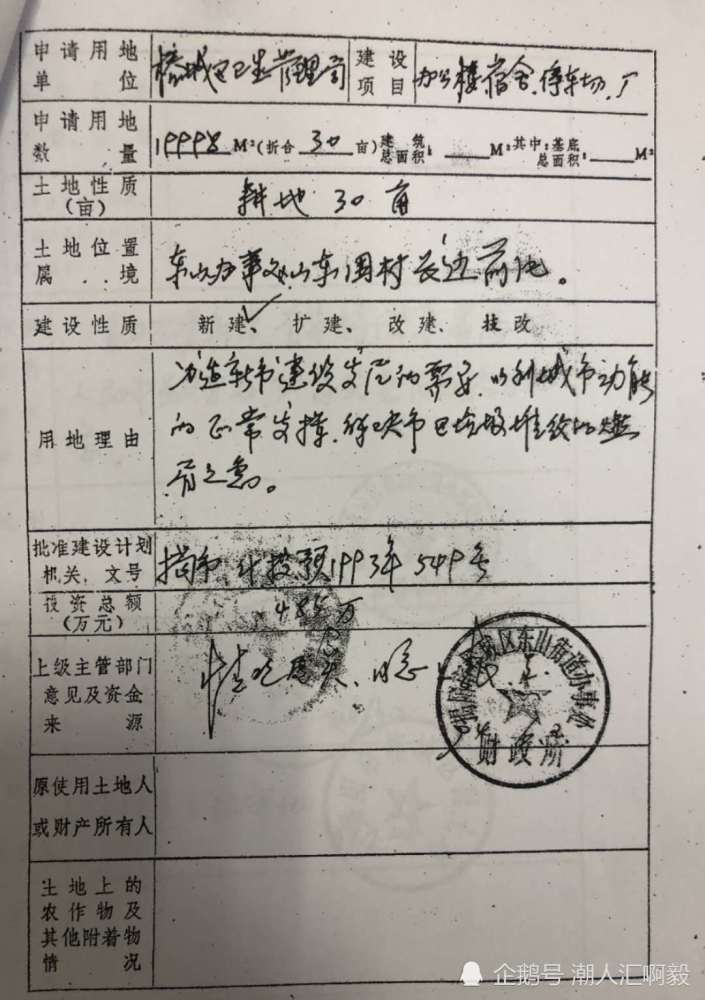 申请用地单位 榕城区卫生管理局 建设项目 办公楼宿舍、停车场、厂
申请用地数量 19998 M²(折合 30 亩) 建筑总面积: M² 其中:基底总面积: M²
土地性质(亩) 耕地 30 亩
土地位置属境 东山办事处山东围村 前地。
建设性质 新建、 扩建、 改建、 技改
用地理由 新市建设发展的需要,以利城市功能
的正常支撑,解决市区垃圾堆放的燃
眉之急。
批准建设计划机关,文号 揭市计投预1993年549号
投资总额(万元) 485万
上级主管部门意见及资金来源 同意
揭阳市榕城区东山街道办事处
财政所
原使用土地人或财产所有人
土地上的农作物及其他附着物情况
企鹅号 潮人汇啊毅